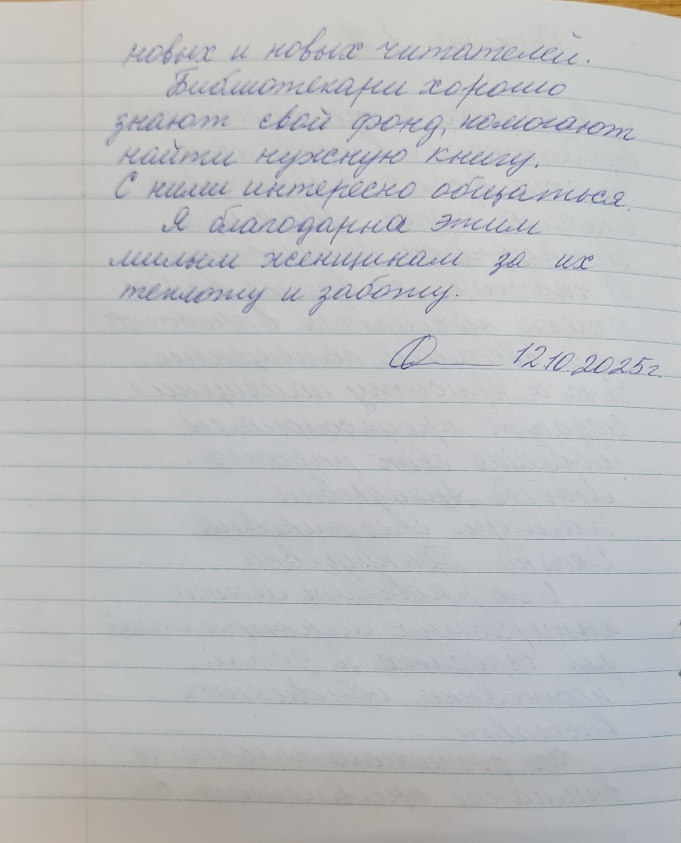 новых и новых читателей.
Библиотекари хорошо
знают свой фонд, помогают
найти нужную книгу.
С ними интересно общаться.
Я благодарна этим
милым женщинам за их
теплоту и заботу.
12.10.2025г.